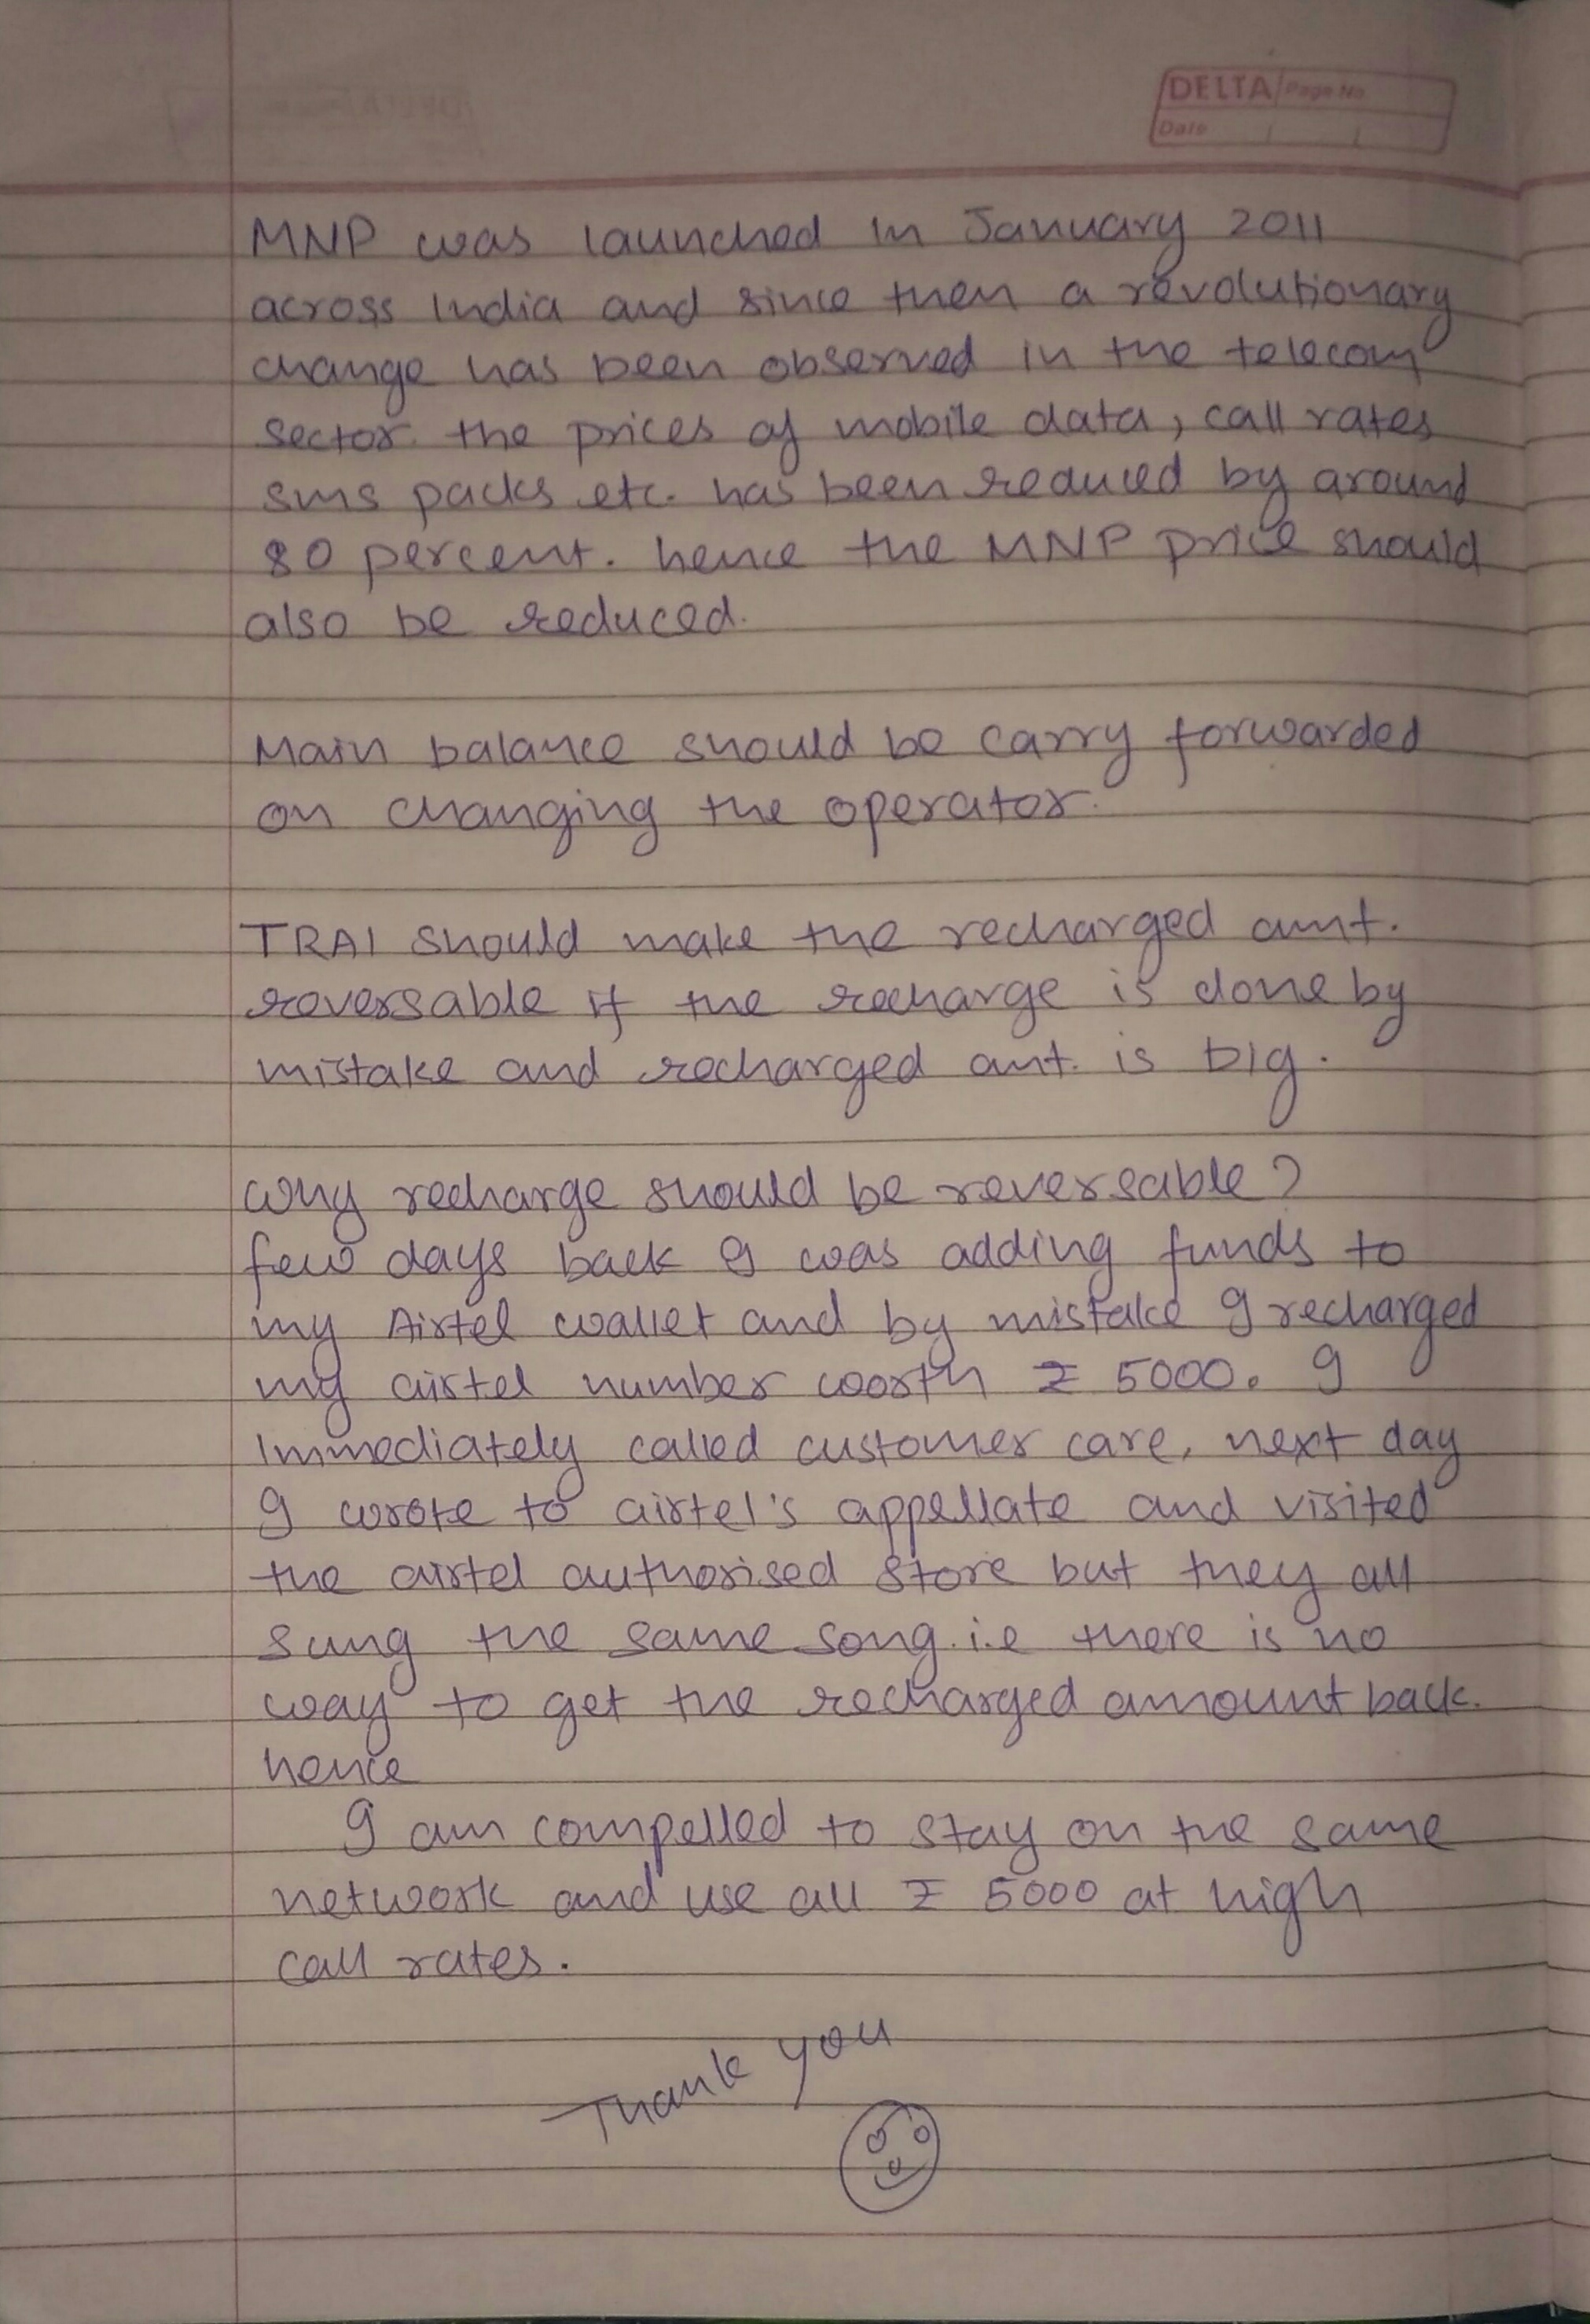 DELTA Page No.
Date
MNP was launched in January 2011
across India and since then a revolutionary
change has been observed in the telecom
sector. the prices of mobile data, call rates
sms packs etc. has been reduced by around
80 percent. hence the MNP price should
also be reduced.
Main balance should be carry forwarded
on changing the operator.
TRAI should make the recharged amt.
reversable if the recharge is done by
mistake and recharged amt. is big.
Why recharge should be reversable?
few days back I was adding funds to
my Airtel wallet and by mistake I recharged
my airtel number worth ₹ 5000. I
immediately called customer care, next day
I wrote to airtel's appellate and visited
the airtel authorised store but they all
sung the same song. i.e there is no
way to get the recharged amount back.
hence
I am compelled to stay on the same
network and use all ₹ 5000 at high
call rates.
Thank you